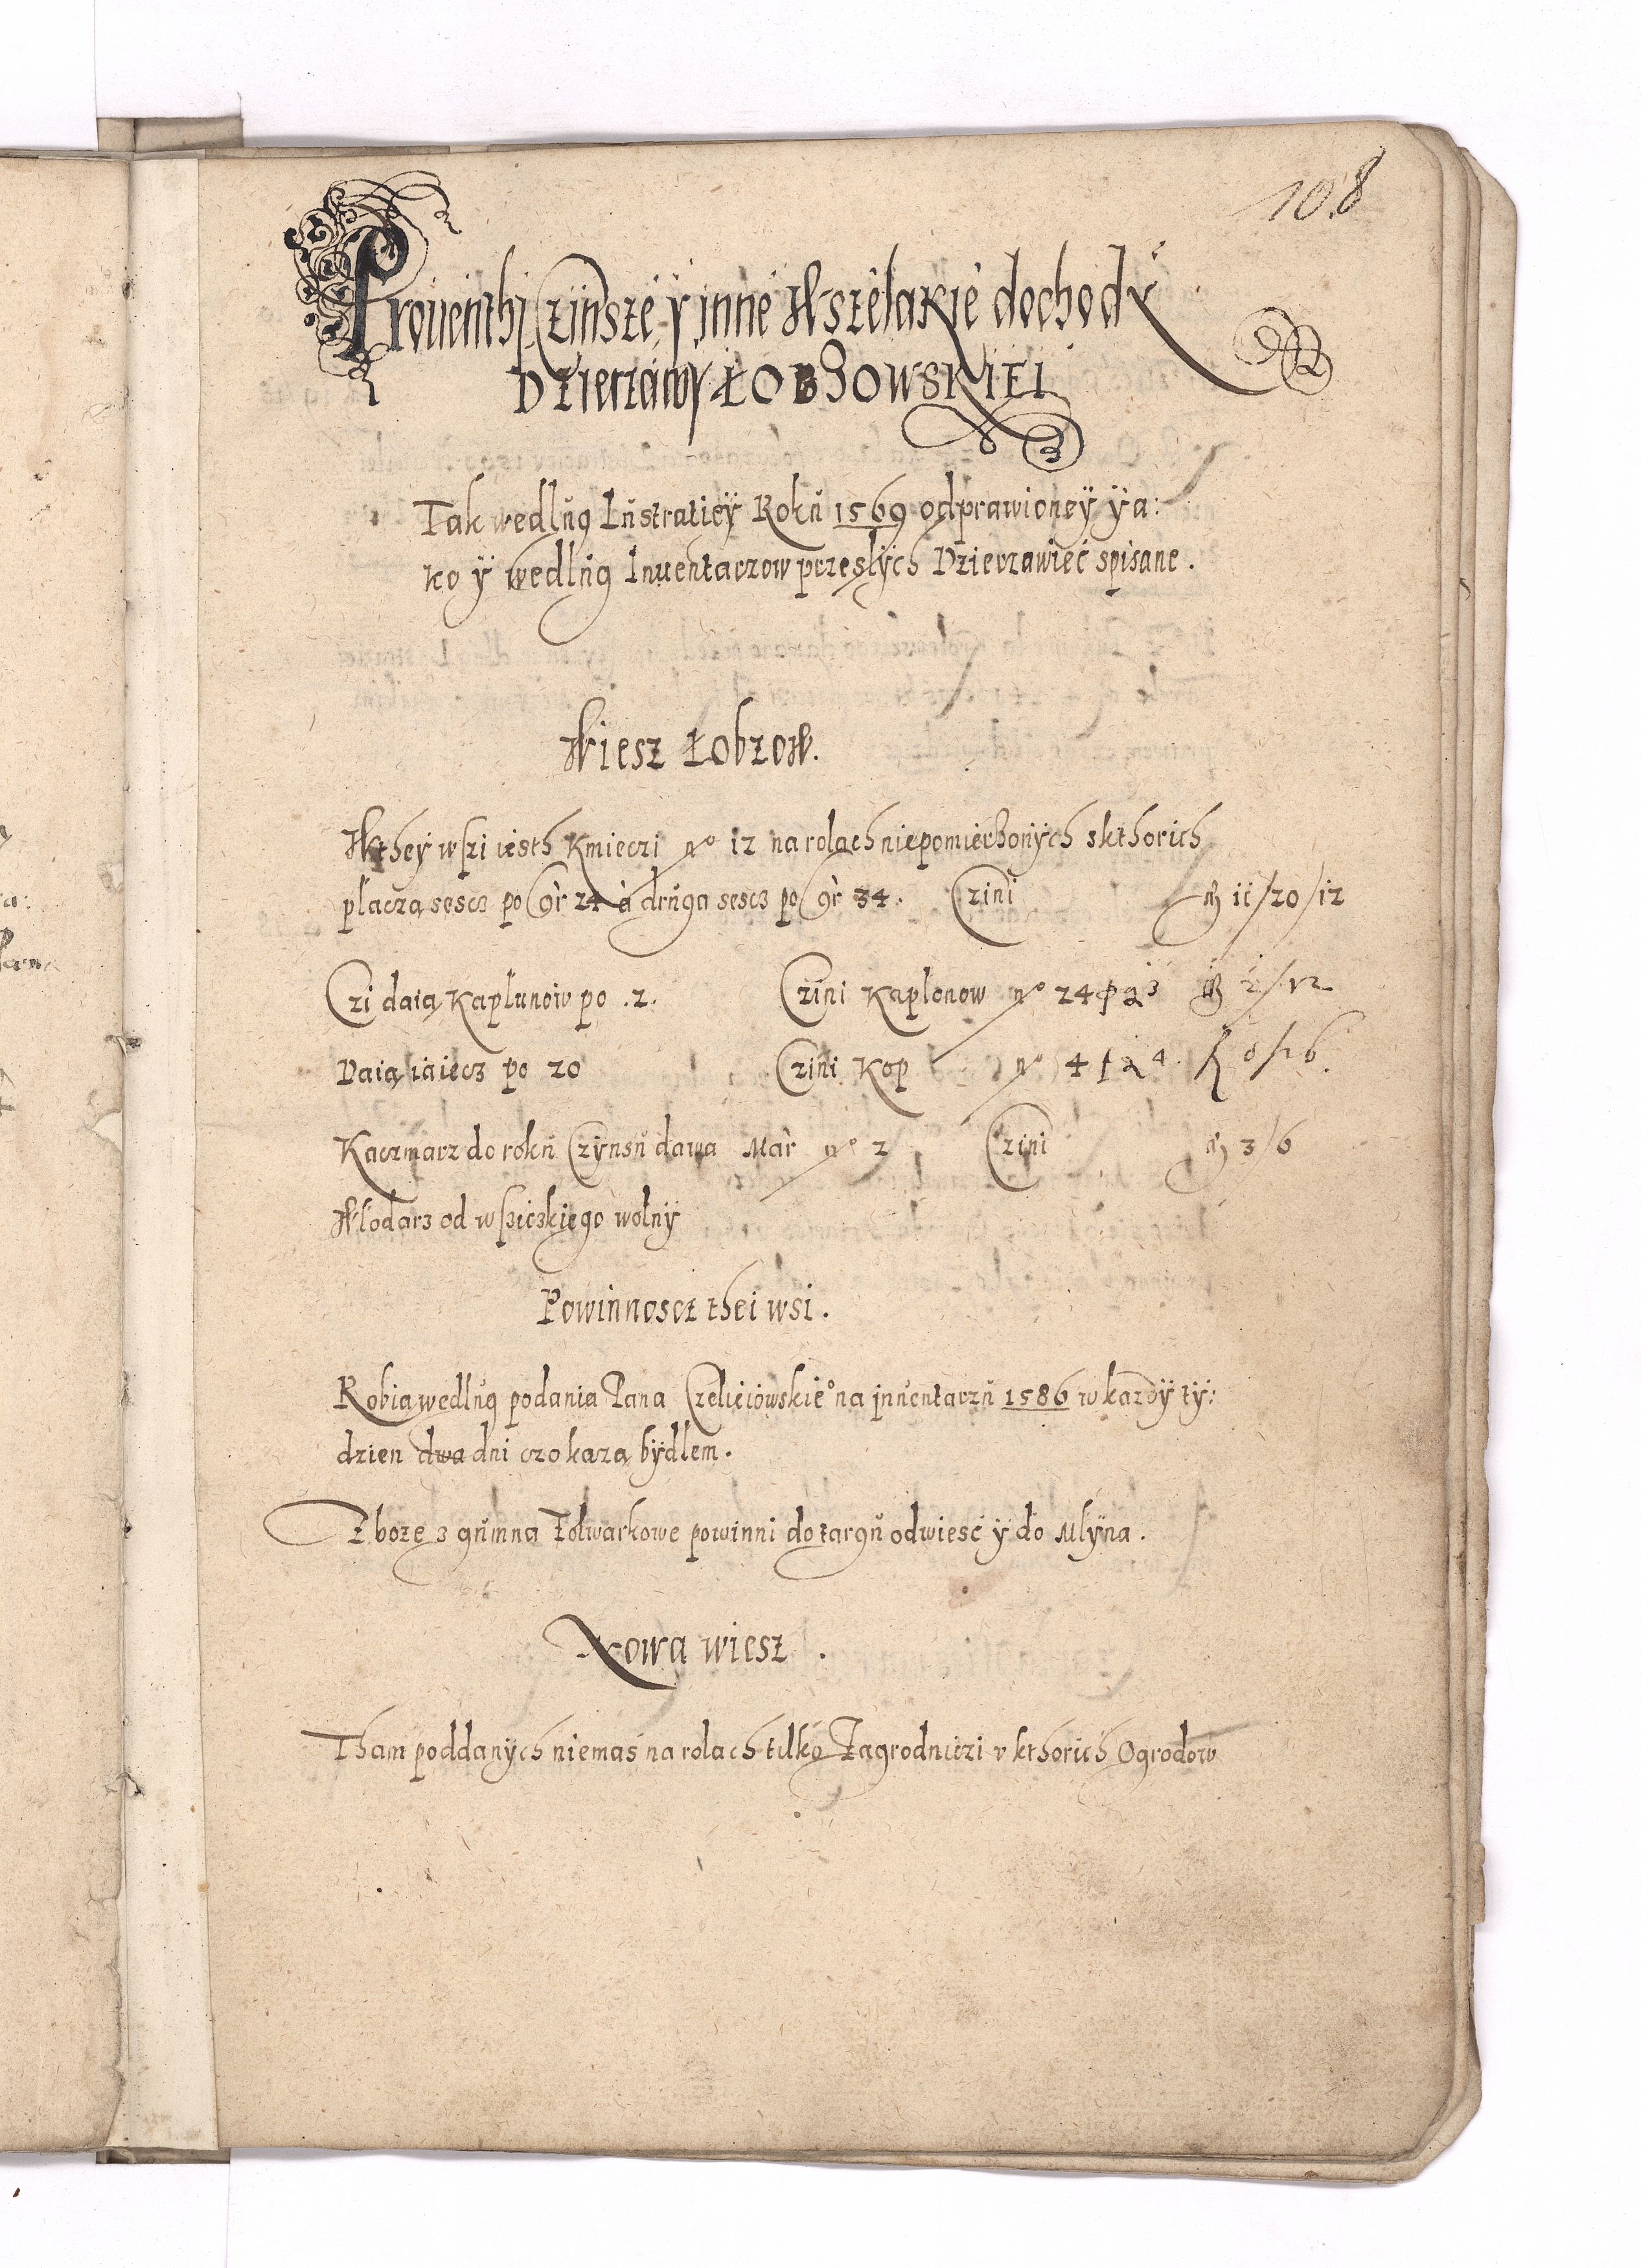 108
Proventhi Czinsze y inne Wszelakie dochody
Dzierzawy ŁOBZOWSKIEI
Tak wedlŭg Lŭstratieÿ Rokŭ 1569 odprawioneÿ ÿa:
ko ÿ wedlŭg Inuentarzow przeslÿch Dzierzawiec spisane.
Wiesz Łobzow.
Wtheÿ wszi iesth Kmieczi nº 12 na rolach niepomierzonÿch skthorich
placzą sescz po Gr 24 à drŭga sescz po Gr 34. Czini 11/20/12
Czi daią Kaplunow po .2. Czini Kaplonow nº 24 2/12
Daią iaiecz po 20 Czini Kop nº 4 0/16.
Kaczmarz do rokŭ Czÿnsŭ dawa Mar nº 2 Czini 3/6
Wlodarz od wszickiego wolnÿ
Powinnoscz thei wsi.
Robia wedlŭg podania Pana Czeliciowskieº na jnuentarzŭ 1586 w kazdÿ tÿ:
dzien dwa dni czo kazą bÿdlem.
Zboze z gŭmna Folwarkowe powinni do targŭ odwiesć ÿ do Mlÿna.
Nowa wiesz.
Tham poddanÿch niemas na rolach tilko Zagrodniczi v kthorich Ogrodow